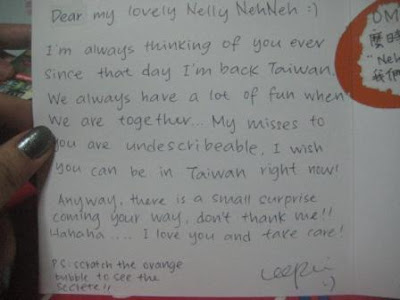 Dear my lovely Nelly NehNeh :)
I'm always thinking of you ever
since that day I'm back Taiwan.
We always have a lot of fun when
we are together... My misses to
you are undescribeable, I wish
you can be in Taiwan right now!
Anyway, there is a small surprise
coming your way, don't thank me!!
Hahaha .... I love you and take care!
P.S: scratch the orange
bubble to see the
secrete!!
OM
麼日
"Neh
我們